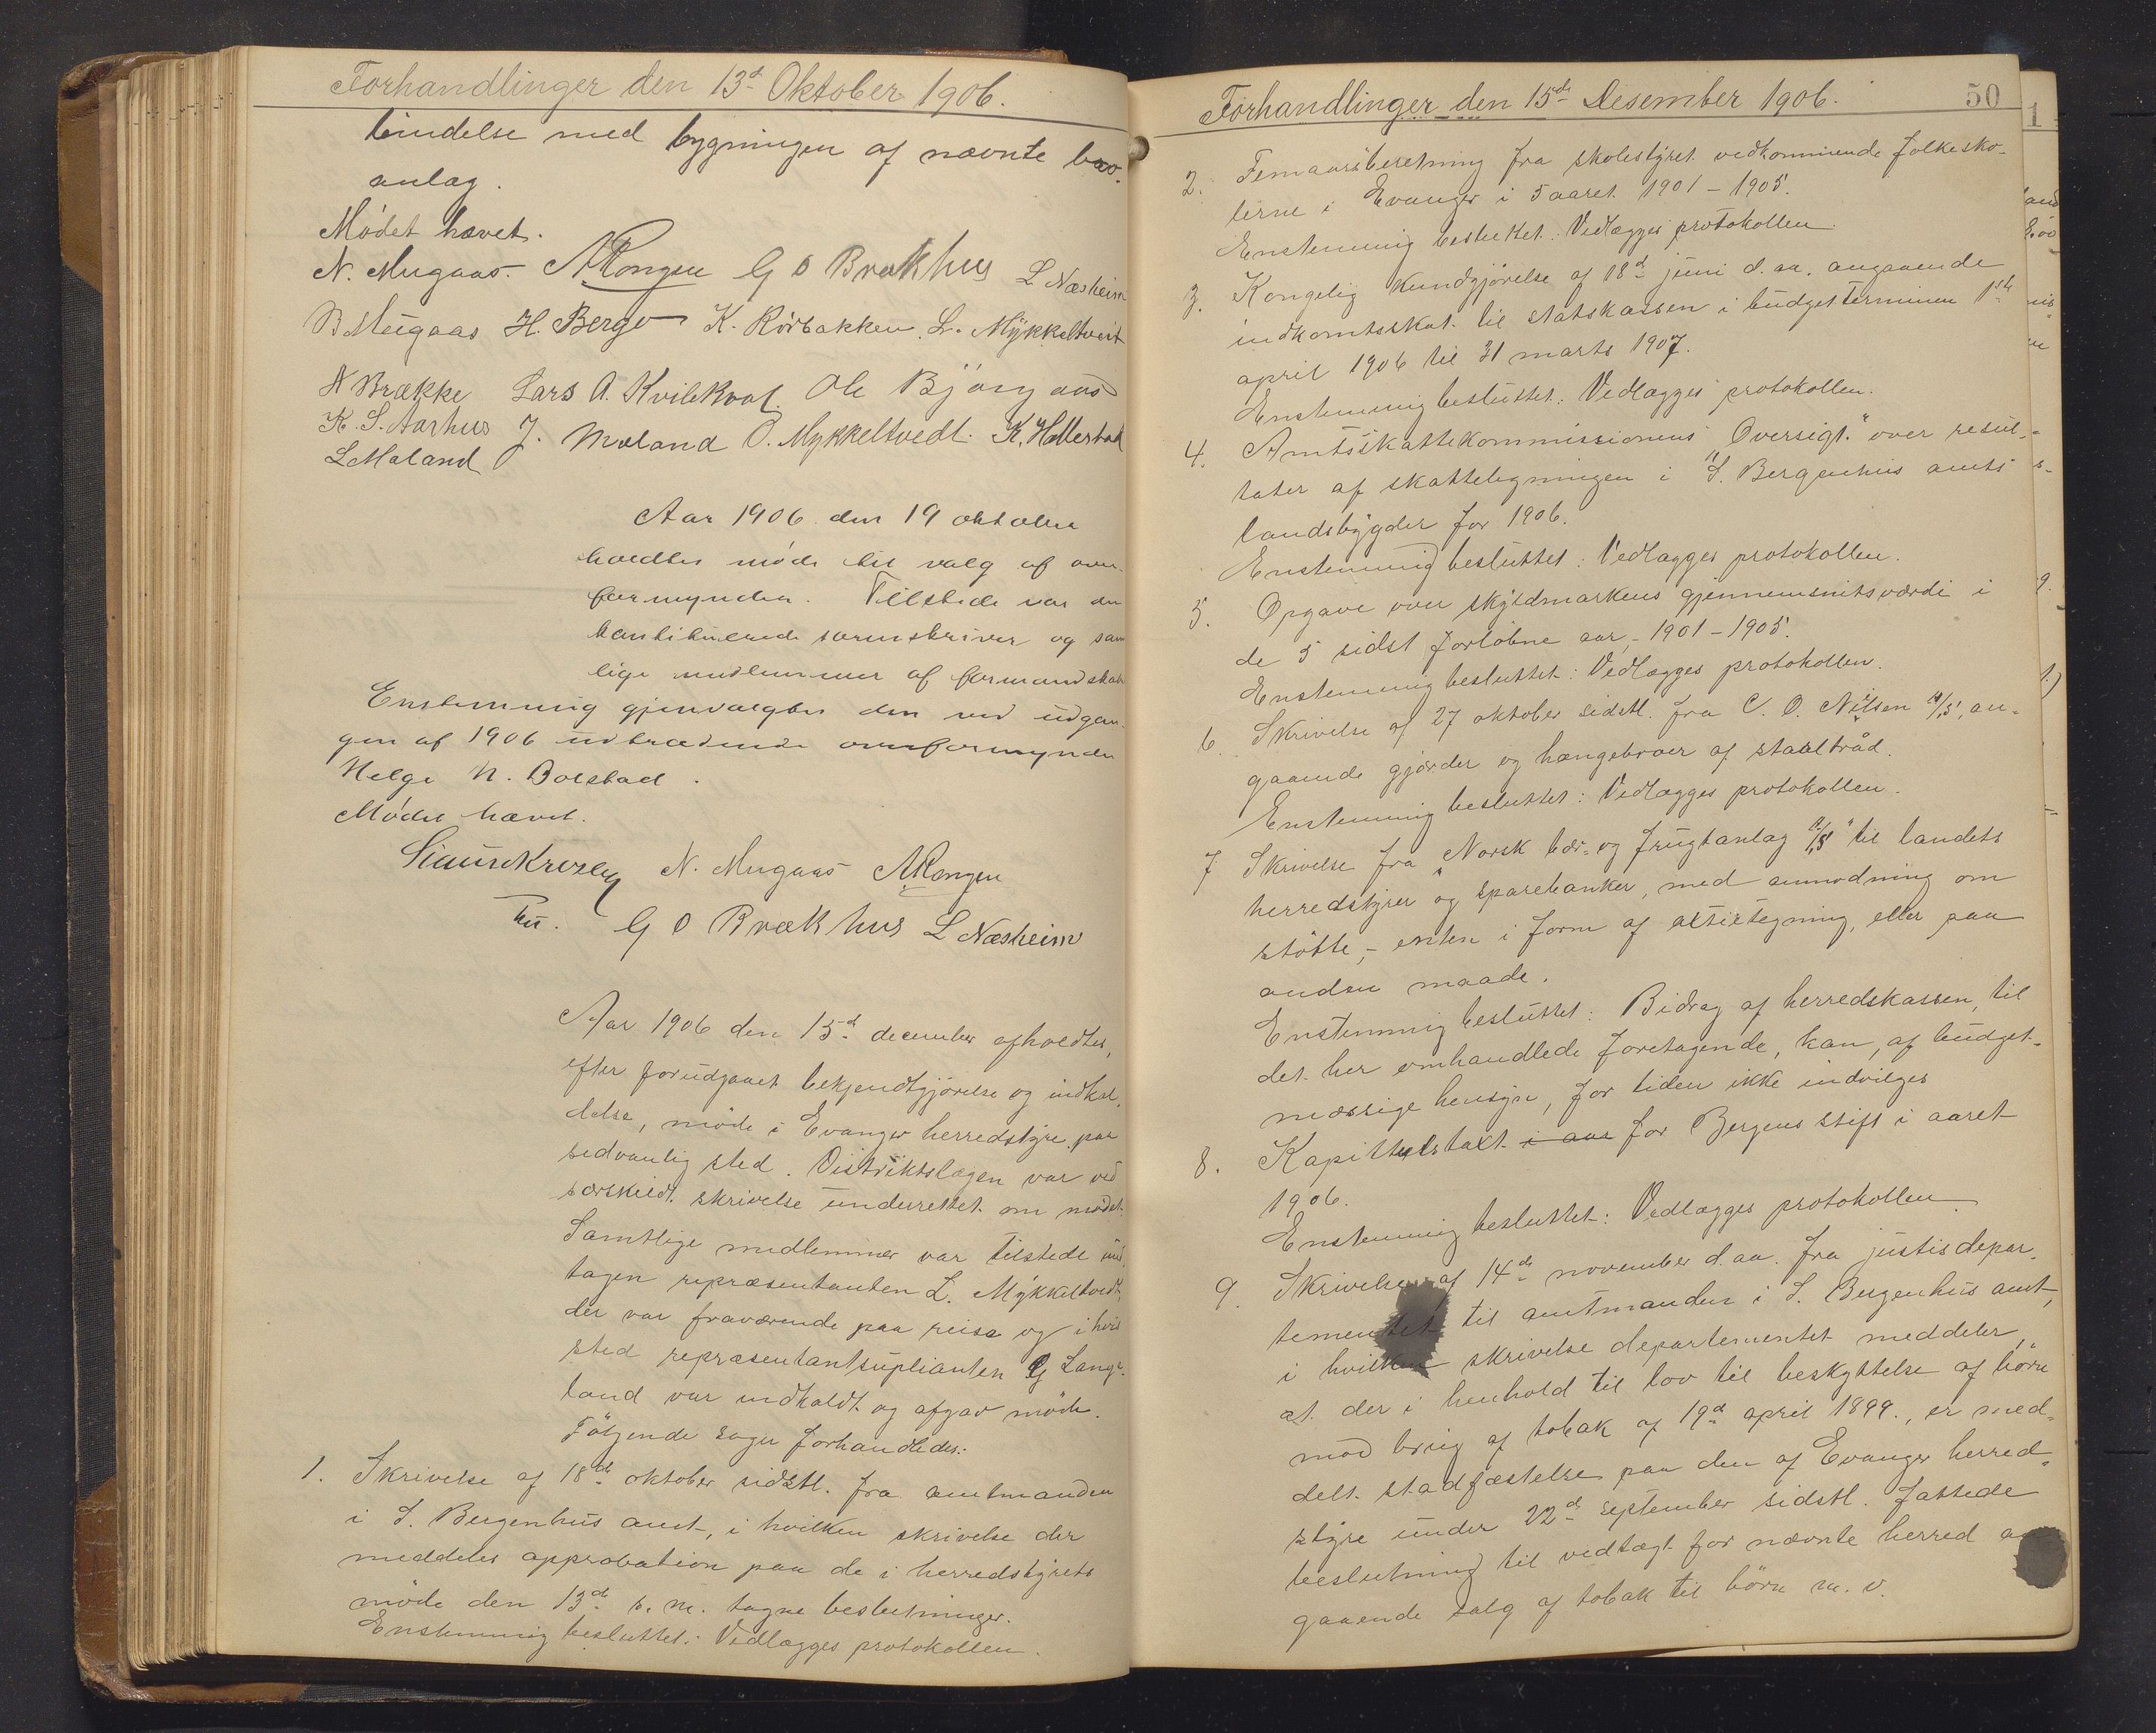 Forhandlinger den 13d Oktober 1906.
bindelse med bygningen af nævnte
anlæg.
Mödet hævet.
N. Mugaas. ARongen G O Brækhus L Næsheim
B Mugaas H. Berge K. Rörbakken. L. Mykkeltveit
N Brække Lars A. Kvilekval. Ole Björgaas
K. S. Aarhus J. Mæland O. Mykkeltvedt. K. Hallestad
L Mæland
Aar 1906 den 19 oktober
holdtes möde til valg af over-
formynder. Tilstede var den
konstituerede sorenskriver og sam
lige medlemmer af formandskab
Enstemmig gjenvalgtes den ved udgan-
gen af 1906 udtrædende overformynder
Helge N. Bolstad.
Mödet hævet.
N. Mugaas ARongen
G O Brækhus L Næsheim
Aar 1906 den 15d december afholdtes,
efter forudgaaet bekjendtgjörelse og indkal-
delse, möde i Evanger herredstyre paa
sedvanlig sted. Distriktslægen var ved
særskildt skrivelse underrettet om mödet.
Samtlige medlemmer var tilstede und-
tagen repræsentanten L. Mykkeltvedt,
der var fraværende paa reise og i hvis
sted repræsentantsuplianten G Lange-
land var indkaldt og afgav möde.
Fölgende sager forhandledes:
1. Skrivelse af 18de oktober sidstl. fra amtmanden
i S. Bergenhus amt, i hvilken skrivelse der
meddeles approbation paa de i herredstyrets
möde den 13de s. m. tagne beslutninger.
Enstemmig besluttet: Vedlægges protokollen.
Forhandlinger den 15de Desember 1906.
50
2. Femaarsberetning fra skolestyret vedkommende folkesko-
lerne i Evanger i 5aaret 1901-1905.
Enstemmig besluttet: Vedlægges protokollen.
3. Kongelig kundgjörelse af 18d juni d. aa. angaaende
indkomtsskat til statskassen i budgetterminen 1ste
april 1906 til 31 marts 1907.
Enstemmig besluttet: Vedlægges protokollen.
4. Amtsskattekommissionens "Oversigt" over resul-
tater af skatteligningen i S. Bergenhus amts
landsbygder for 1906.
Enstemmig besluttet: Vedlægges protokollen.
5. Opgave over skyldmarkens gjennemsnitsværdi i
de 5 sidst forlöbne aar, - 1901-1905.
Enstemmig besluttet: Vedlægges protokollen.
6. Skrivelse af 27 oktober sidstl. fra C. O. Nilsen A/S, an-
gaaende gjærder og hængebroer af staaltråd.
Enstemmig besluttet: Vedlægges protokollen.
7 Skrivelse fra "Norsk bær- og frugtanlæg A/S" til landets
herredstyrer og sparebanker, med anmodning om
stötte, - enten i form af aktietegning, eller paa
anden maade.
Enstemmig besluttet: Bidrag af herredskassen, til
det her omhandlede foretagende, kan, af budget-
mæssige hensyn, for tiden ikke indvilges
8. Kapitelstakt i aar for Bergens stift i aaret
1906.
Enstemmig besluttet: Vedlægges protokollen.
9. Skrivelse af 14de november d. aa. fra justisdepar-
tementet til amtmanden i S. Bergenhus amt,
i hvilken skrivelse departementet meddeler,
at der i henhold til lov til beskyttelse af börn
mod brug af tobak af 19d april 1899., er med-
delt stadfæstelse paa den af Evanger herred-
styre under 22d september sidstl. fattede
beslutning til vedtægt for nævnte herred
gaaende salg af tobak til börn m. v.